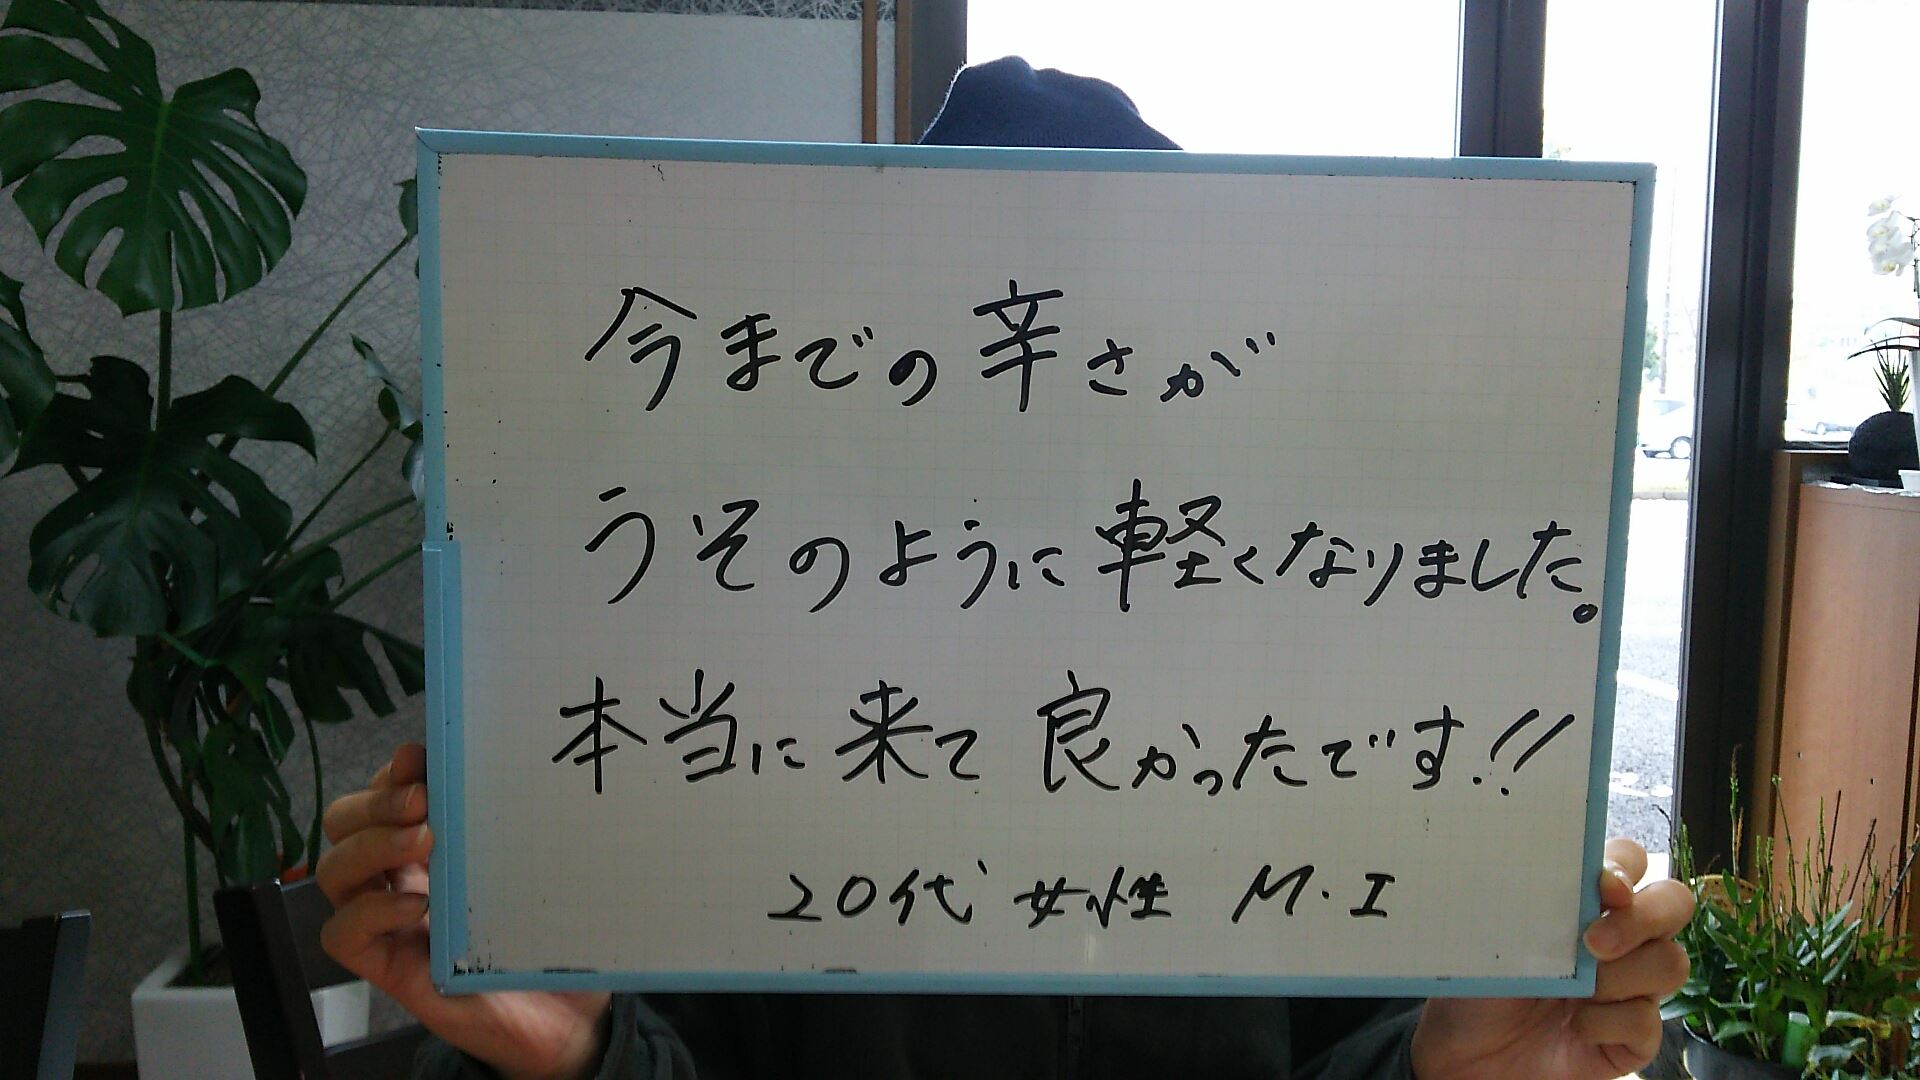 今までの辛さが
うそのように軽くなりました。
本当に来て良かったです!!
20代 女性 M.I